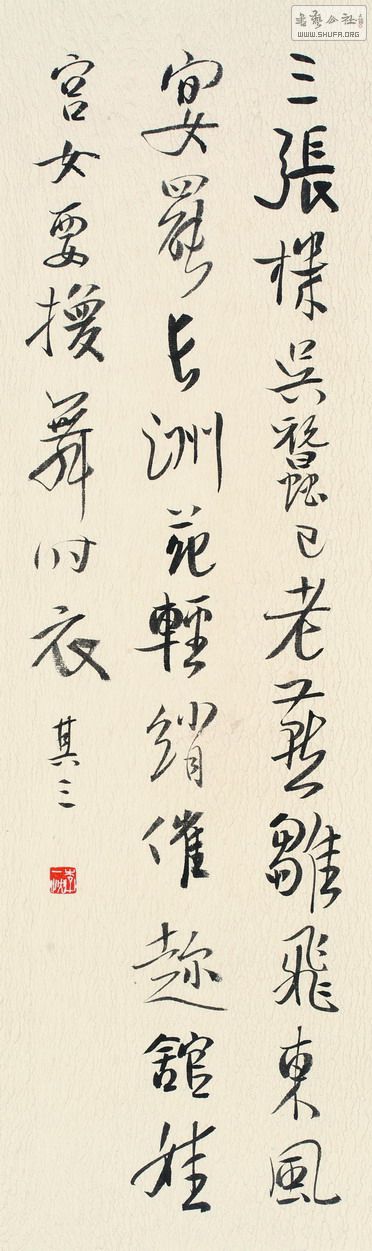 書藝公社
WWW.SHUFA.ORG
三張機吳蠶已老燕雛飛東風
宴罷長洲苑輕綃催趁舘娃
宮女要換舞時衣 其三